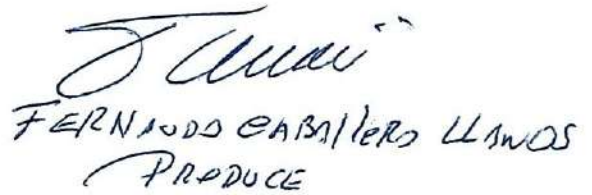 FERNANDO CABALLERO LLANOS
PRODUCE